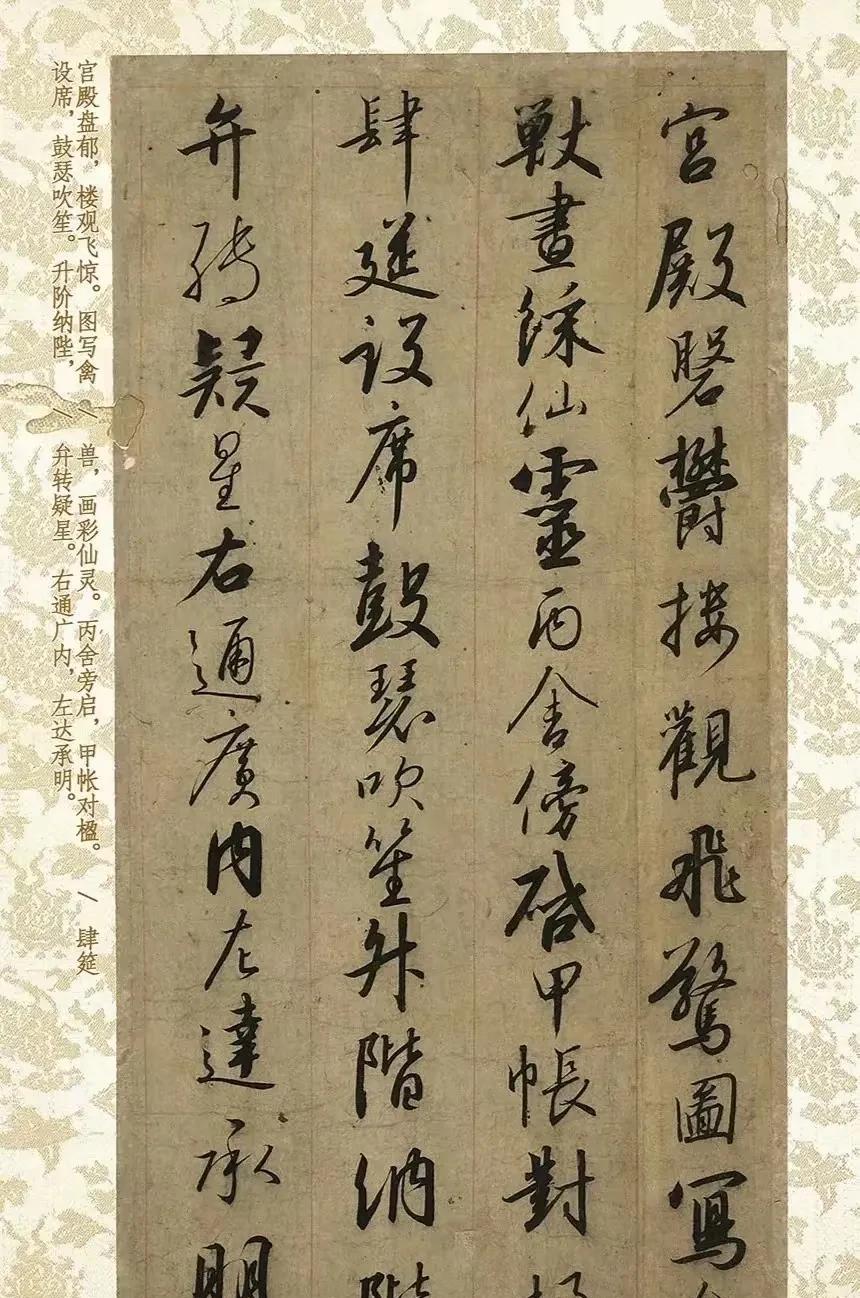 宮殿磐鬱樓觀飛驚圖寫
獸畫綵仙靈丙舍傍啓甲帳對
肆筵設席鼓瑟吹笙升階納陛
弁轉疑星右通廣內左達承明
宫殿盘郁，楼观飞惊。图写禽兽，画彩仙灵。丙舍旁启，甲帐对楹。/ 肆筵
设席，鼓瑟吹笙。升阶纳陛，弁转疑星。右通广内，左达承明。